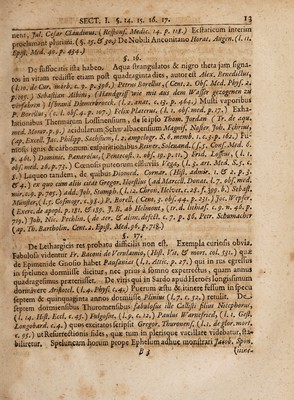 SECT. I. §. 14. 15. 16. 17.
13
nent, Jul. Cæsar Claudinus, (Respons. Medic. 14. p. 118.) Ecstaticum interim
proclamant plurimi. (§. 25. & 30.) De Nobili Anconitano Horat. Augen. (l. 11.
Epist. Med. 40. p. 434.)
§. 16.
De suffocatis ita habeo. Aqua strangulatos & nigro theta jam signa-
tos in vitam rediisse etiam post quadraginta dies, autor est Alex. Benedictus,
(l. 10. de Cur. morb. c. 9. p. 396.) Petrus Borellus, (Cent. 2. Obf. Med. Phys. 2.
p. 107.) Sebastian Albin, (Handgriff wie mit aus dem Wasser gezogenen zu
verfahren) Isbrand Diemerbroeck. (l. 2. anat. c. 13. p. 464.) Musti vaporibus
P. Borellus, (c. l. obs. 4. p. 107.) Felix Platerus, (l. 1. obs. med. p. 17.) Exha-
lationibus Thematum Loffinensium, de seipso Thom. Jordan (Tr. de aqu.
med. Morav. p. 9.) acidularum Schwalbacensium Magnif. Nester, Joh. Fehrius,
(ap. Excell. Jac. Philipp. Sachsium, l. 2. ampelogr. §. 6. memb. 1. c. 3. p. 162.) Fu-
mo ignis & carbonum exspiratiolnibus Reiner. Solenand. (s. 5. Conf. Med. 6.
p. 461.) Dominic. Panarolus, (Pentecost. 1. obs. 19. p. 11.) Erid. Laffius, (l. 1.
obs. med. 28. p. 72.) Cerussis puteorum effluviis Fegra, (l. 3. art. Med. S. 5. c.
5.) Laqueo tandem, de quibus Diomed. Cornar. (Hist. admir. 1. & 2. p. 3.
& 4.) ex quo cum aliis citat Gregor. Horstius, (ad Marcell. Donat. l. 2. obs. med.
obs. 9. c. 9. p. 797.) add. Joh. Stumpf. (l. 12. Chron. Helvet. c. 28. f. 399. b.) Sebast.
Münster, (l. 5. Cosmogr. c. 23.) P. Borell. (Cent. 3. obs. 44. p. 251.) Joc. Wipfer.
(Exerc. de apopl. p. 151. & 159. J. B. ab Helmont, (tr. d. lithias. c. 9. n. 62. p.
719.) Joh. Nic. Pechlin. (de aer. & alim. defect. c. 7. p. 86. Petr. Schumacher
(ap. Th. Bartholin. Cent. 2. Epist. Med. 96. p. 718.)
§. 17.
De Lethargicis res probatu difficilis non est. Exempla curiosis obvia.
Fabulosa videatur Fr. Baconi de Verulamio, (Hist. Vit. & mort. col. 551.) quæ
de Epimenide Gnosio habet Pausanias (l. 1. Attic. p. 27.) qui in rus egressus
in speluncæ dormisse dicitur, nec prius a somno experrectus, quam annus
quadragesimus præteriisset. De viris qui in Sardo apud Heroës longissimum
dormivere Aristotel. (l. 4. Phys. c. 4.) Puerum æstu & itinere fessum in specu
septem & quinquaginta annos dormisse Plinius (l. 7. c. 52.) retulit. De
septem dormientibus Thaumentibus fabulosus ille Callisti filius Nicephorus,
(l. 14. Hist. Eccl. c. 45.) Fulgosius, (l. 9. c. 12.) Paulus Warnefried, (l. 1. Gest.
Longobard. c. 4.) quos excitatos scripsit Gregor. Thuronens, (l. 1. de glor. mort.
c. 95.) ut Resurrectionis fides, quæ tum in plerisque vacillare videbatur, sta-
biliretur. Speluncam horum prope Ephesum adhuc monstrari Jacob. Spon.
B 3